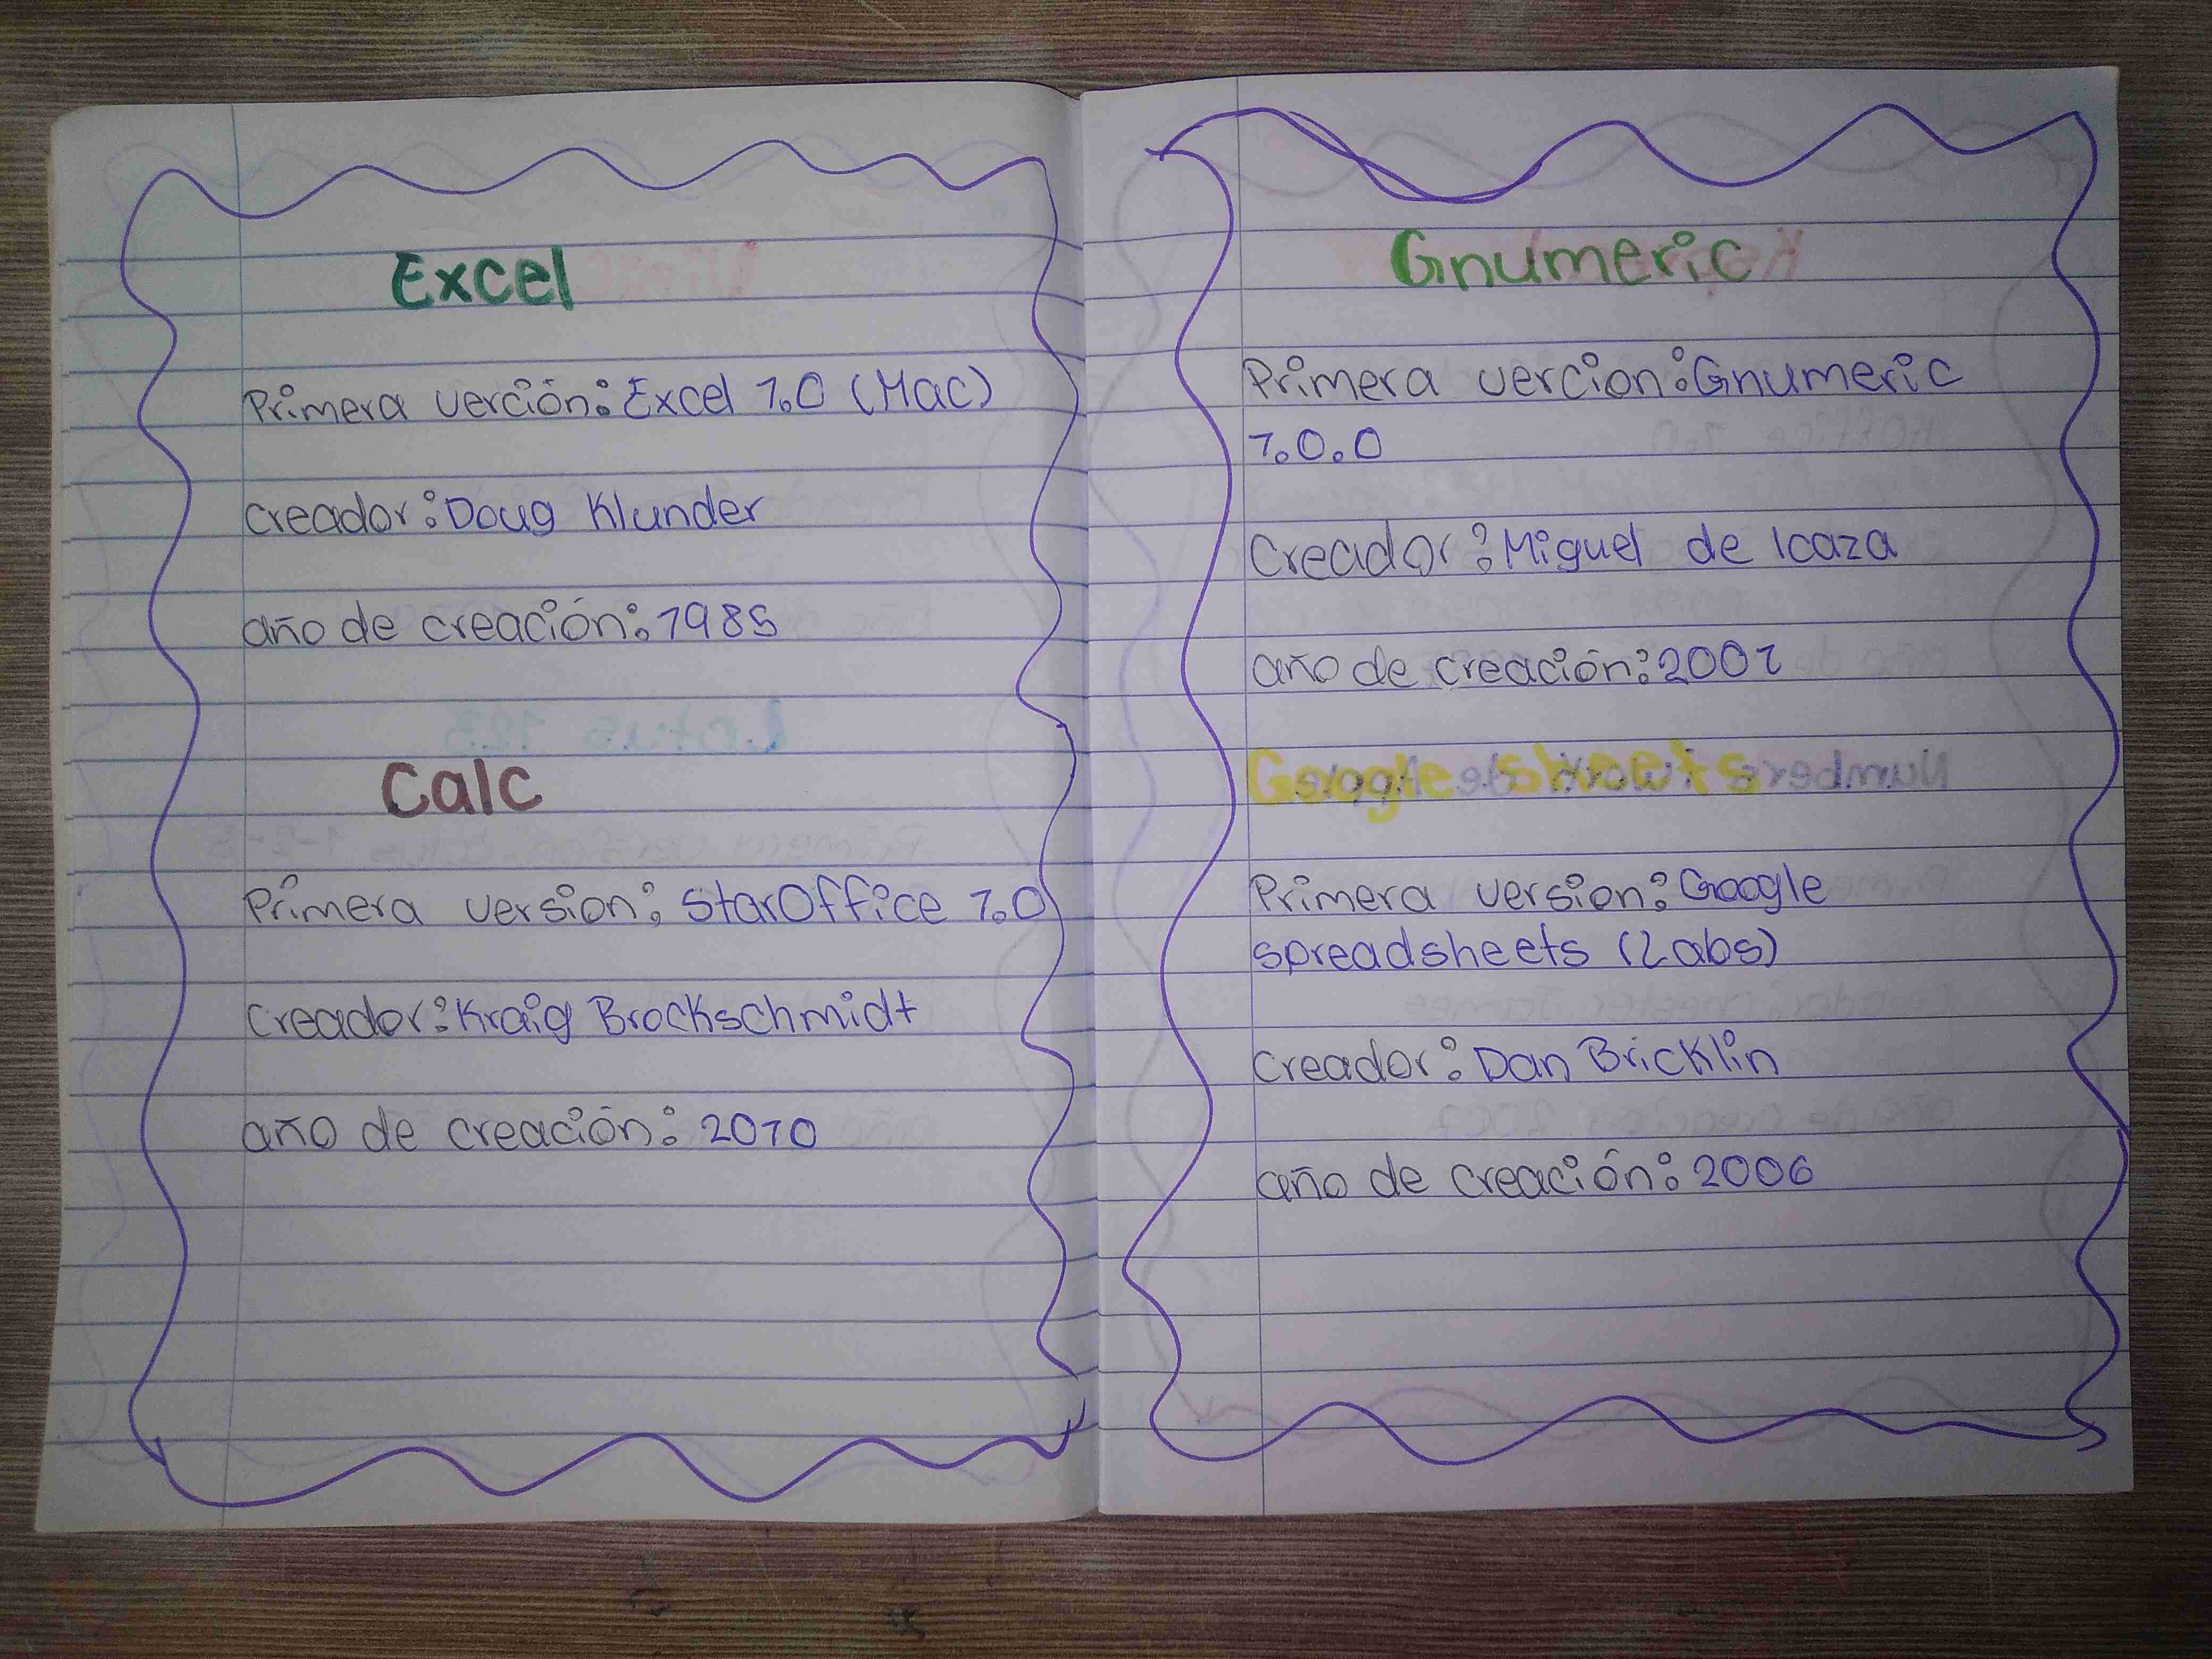 Excel
Primera verción: Excel 1.0 (Mac)
creador: Doug Klunder
año de creación: 1985
Calc
Primera version: StarOffice 1.0
creador: Kraig Brockschmidt
año de creación: 2010
Gnumeric
Primera vercion: Gnumeric
1.0.0
Creador: Miguel de Icaza
año de creación: 2001
Google sheets
Primera version: Google
spreadsheets (Labs)
creador: Dan Bricklin
año de creación: 2006